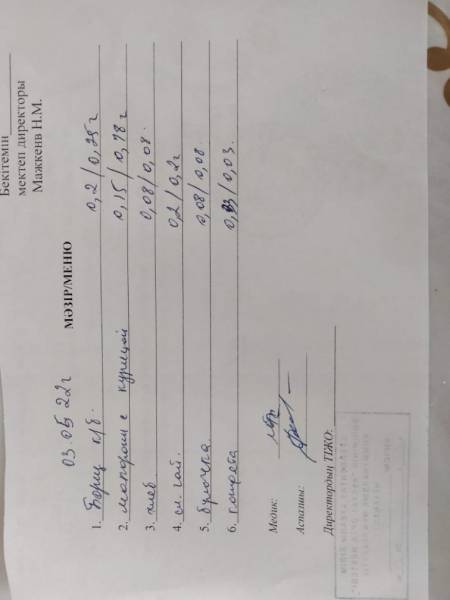 Бекітемін
мектеп директоры
Мажкенв Н.М.
МӘЗІР/МЕНЮ
03.05 22г
1. Борщ к/б. 0,2/0,25г
2. макароны с курицой 0,15/0,18г
3. хлеб 0,08/0,08.
4. сл. чай. 0,2/0,2г
5. булочка 0,08/0,08
6. конфета 0,03/0,03.
Медик:
Аспазшы:
Директордың ТІЖО: